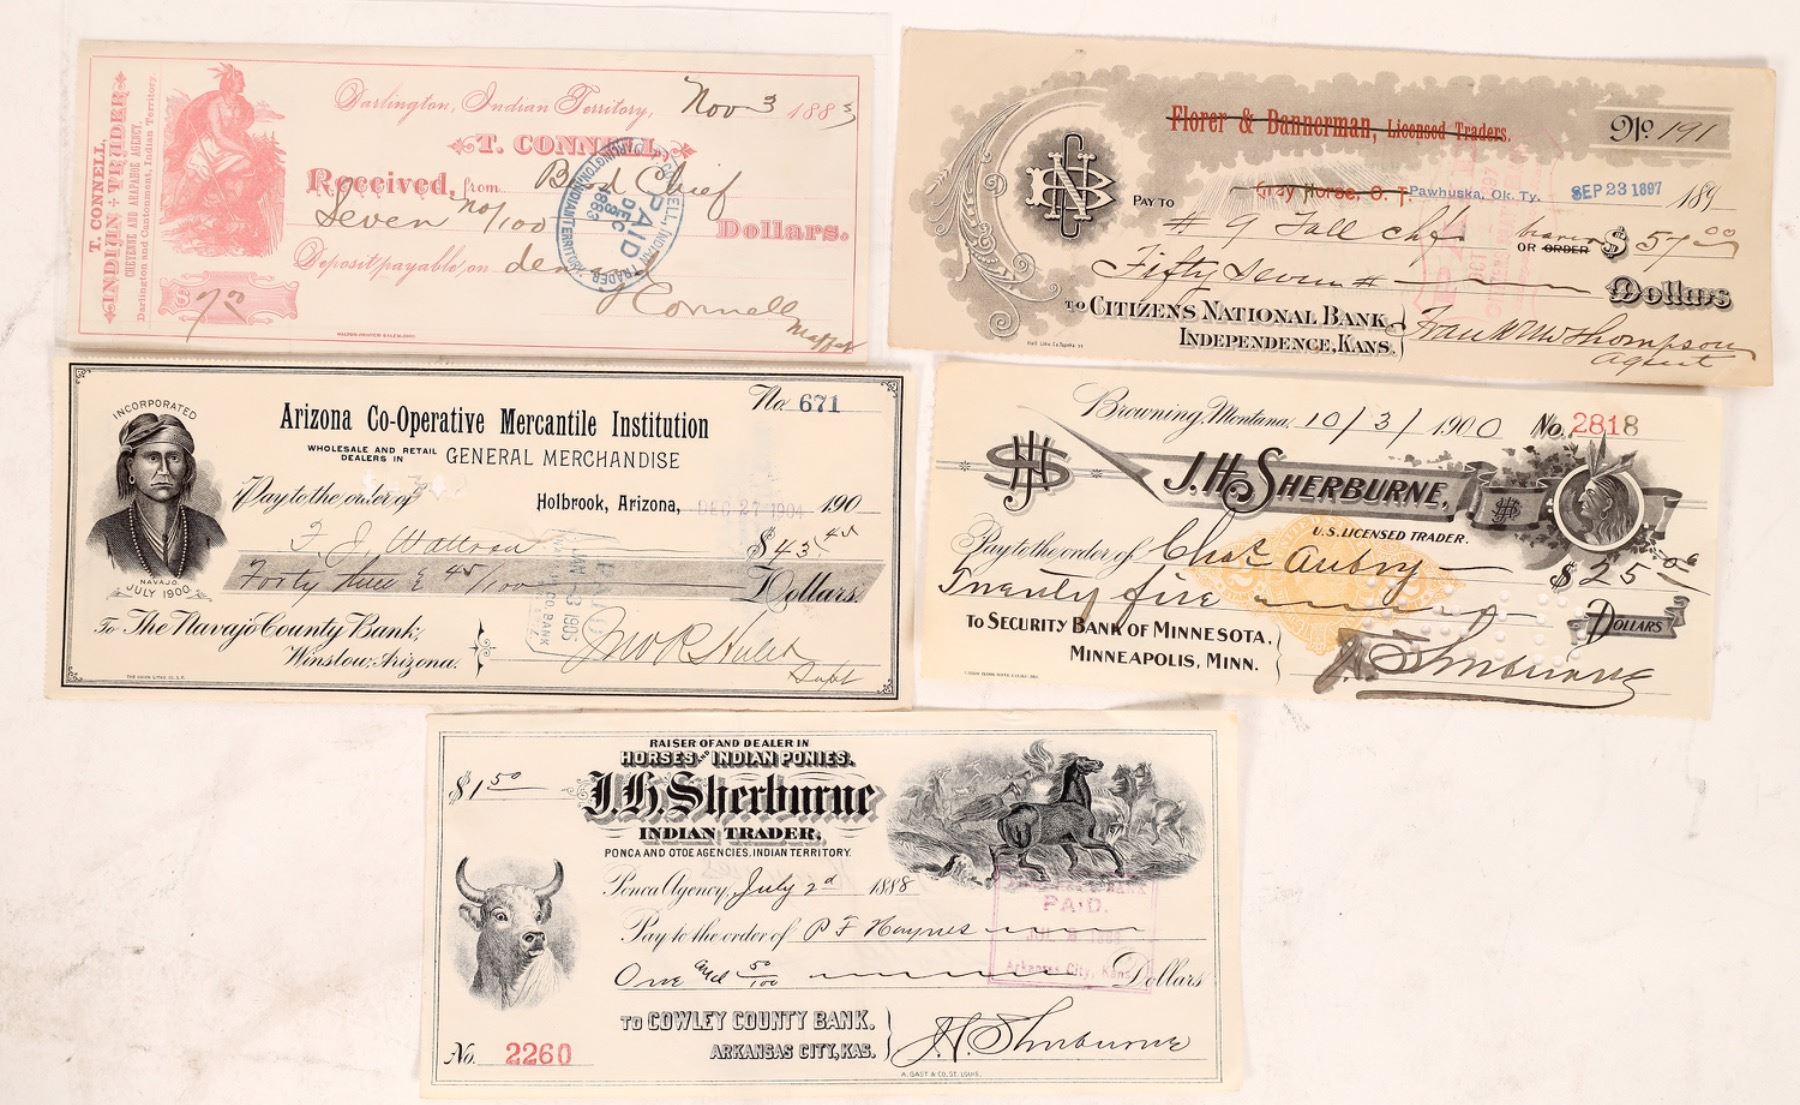 T. CONNELL,
INDIAN TRADER
CHEYENNE AND ARAPAHOE AGENCY.
Darlington and Cantonment, Indian Territory.
Darlington, Indian Territory, Nov 3 1883
T. CONNELL,
Received, from Bird Chief
Seven no/100 Dollars.
Deposit payable on demand
$ 7.00
T Connell
PAID
DEC
1883
INDIAN TRADER
DARLINGTON INDIAN TERRITORY
Florer & Bannerman, Licensed Traders.
No. 191
Grey Horse, O. T. Pawhuska, Ok. Ty. SEP 23 1897 189
PAY TO # 9 Fall Chf bearer
OR ORDER $ 57.00
Fifty Seven # Dollars
TO CITIZENS NATIONAL BANK
INDEPENDENCE, KANS.
Frank W Thompson
Agent
INCORPORATED
NAVAJO
JULY 1900
No. 671
Arizona Co-Operative Mercantile Institution
WHOLESALE AND RETAIL
DEALERS IN GENERAL MERCHANDISE
Pay to the order of Holbrook, Arizona, DEC 27 1904 190
$ 43.45
Forty three & 45/100 Dollars.
To The Navajo County Bank,
Winslow, Arizona.
Jno R Hulet
Supt
Browning, Montana. 10/3/1900 No. 2818
JHS
J. H. SHERBURNE,
U.S. LICENSED TRADER.
Pay to the order of Chas Aubry
$ 25
Twenty five DOLLARS
TO SECURITY BANK OF MINNESOTA.
MINNEAPOLIS, MINN.
J H Sherburne
RAISER OF AND DEALER IN
HORSES AND INDIAN PONIES.
$ 1 50
J. H. Sherburne
INDIAN TRADER,
PONCA AND OTOE AGENCIES, INDIAN TERRITORY.
Ponca Agency, July 2d 1888
Pay to the order of P F Haynes
One and 50/100 Dollars
PAID.
Arkansas City, Kans.
TO COWLEY COUNTY BANK.
ARKANSAS CITY, KAS.
J. H. Sherburne
No. 2260
A. GAST & CO. ST. LOUIS.